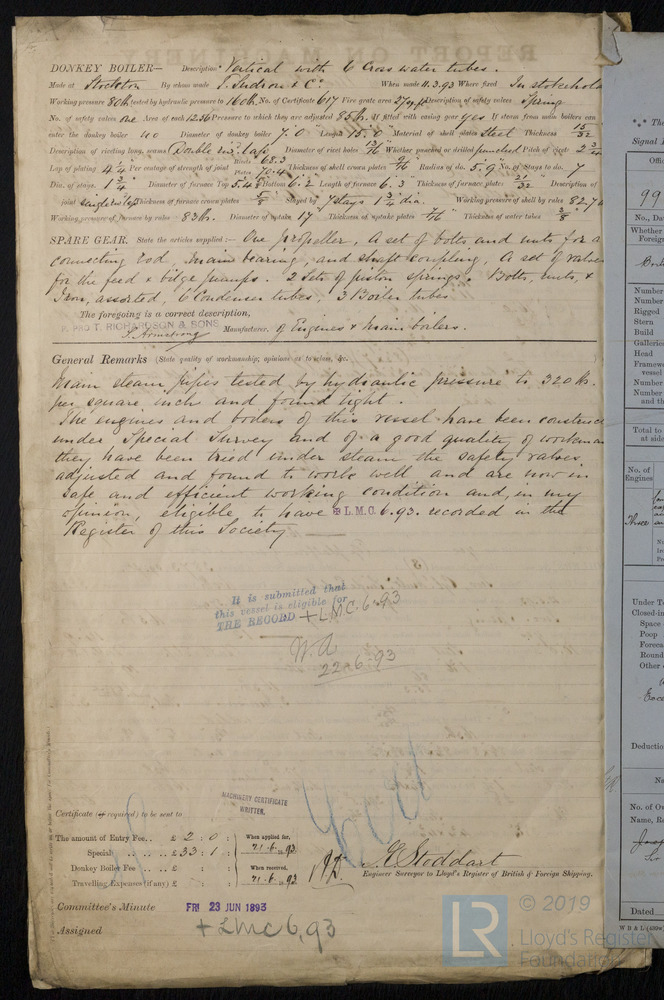 DONKEY BOILER— Description Vertical with 6 Cross water tubes.
Made at Stockton By whom made T. Sudron & Co When made 11.3.93 Where fixed In stokehold
Working pressure 80 lb tested by hydraulic pressure to 160 lb. No. of Certificate 617 Fire grate area 27 4 ft Description of safety valves Spring
No. of safety valves one Area of each 12.56 Pressure to which they are adjusted 85 lb. If fitted with easing gear yes If steam from main boilers can
enter the donkey boiler no Diameter of donkey boiler 7'.0" Length 15'.0" Material of shell plates Steel Thickness 15/32
Description of riveting long. seams Double riv. lap Diameter of rivet holes 13/16 Whether punched or drilled punched Pitch of rivets 2 3/4
Lap of plating 4 1/4 Per centage of strength of joint Rivets 68.3 Plates 70.4 Thickness of shell crown plates 9/16 Radius of do. 5'.9" No. of Stays to do. 7
Dia. of stays. 1 3/4" Diameter of furnace Top 5'.4 5/8 Bottom 6'.2 Length of furnace 6'.3 Thickness of furnace plates 21/32 Description of
joint single riv lap Thickness of furnace crown plates 5/8 Stayed by 7 stays 1 3/4" dia. Working pressure of shell by rules 82.7 lb
Working pressure of furnace by rules 83 lb. Diameter of uptake 17" Thickness of uptake plates 7/16 Thickness of water tubes 3/8"
SPARE GEAR. State the articles supplied:— One propeller, A set of bolts and nuts for a
connecting rod, main bearing, and shaft coupling, A set of valves
for the feed & bilge pumps. 2 Sets of piston springs. Bolts, nuts, &
Iron, assorted, 6 Condenser tubes, 3 Boiler tubes
The foregoing is a correct description,
P. PRO T. RICHARDSON & SONS
J. Armstrong Manufacturer. of Engines & main boilers.
General Remarks (State quality of workmanship, opinions as to class, &c.
Main steam pipes tested by hydraulic pressure to 320 lb.
per square inch and found tight.
The engines and boilers of this vessel have been construc
under Special Survey and of a good quality of workman
they have been tried under steam the safety valves
adjusted and found to work well and are now in
safe and efficient working condition and, in my
opinion, eligible to have L.M.C. 6.93. recorded in the
Register of this Society
It is submitted that
this vessel is eligible for
THE RECORD + LMC. 6.93
22.6.93
MACHINERY CERTIFICATE
WRITTEN.
Certificate (if required) to be sent to
The amount of Entry Fee.. £ 2 : 0 : When applied for,
Special .. .. .. £ 33 : 1 : 21.6.93
Donkey Boiler Fee .. .. £ : : When received,
Travelling Expenses (if any) £ : : 21.6.93
Engineer Surveyor to Lloyd's Register of British & Foreign Shipping.
Committee's Minute FRI 23 JUN 1893
Assigned + LMC 6,93
The
Signal
99
No., Da
Whether
Foreig
Number
Number
Rigged
Stern
Build
Galleries
Head
Framew
vessel
Number
Number
and th
Total to
at side
No. of
Engines
Three
Under T
Closed-in
Space
Poop
Forecas
Round
Other
Deductio
No. of Ow
Name, Re
Dated
© 2019
LR
Lloyd's Register
Foundation